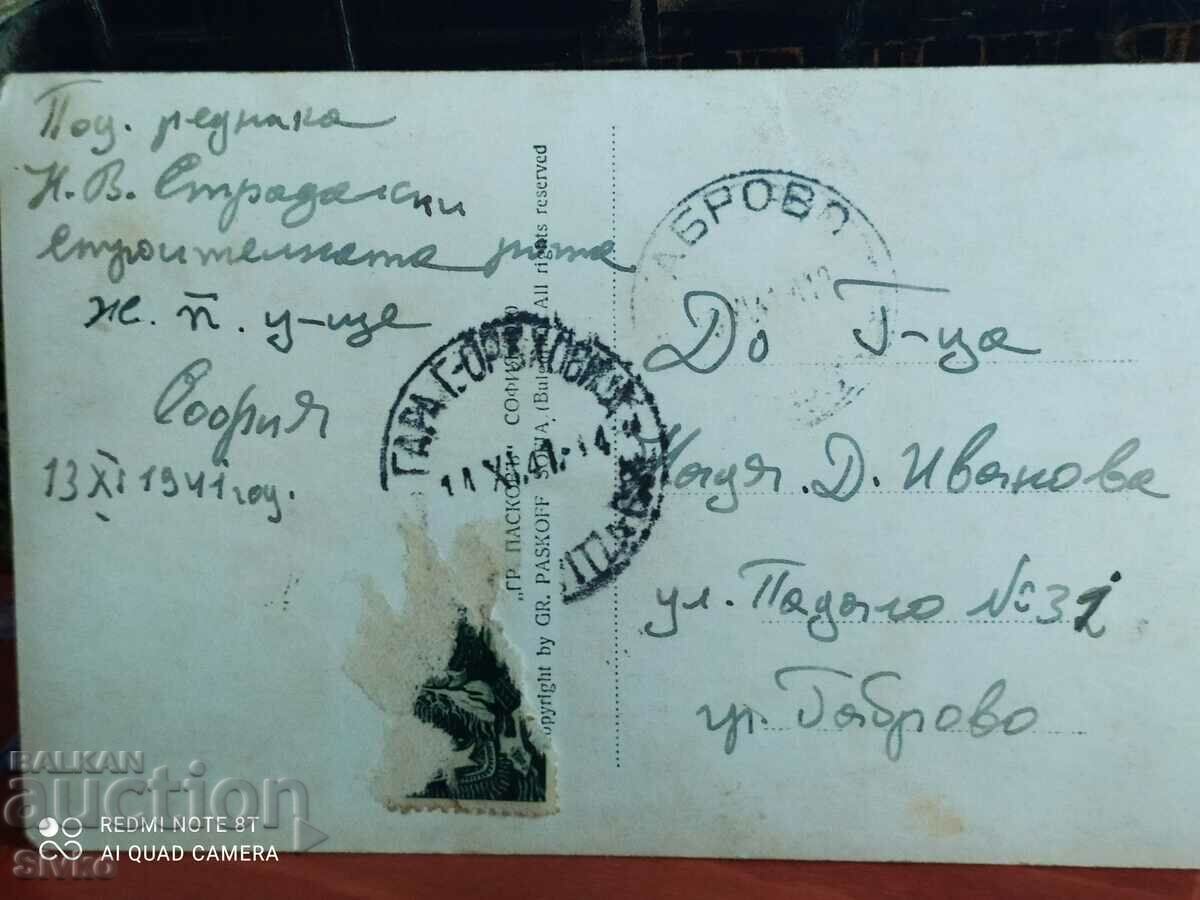 Под. редника
Н. В. Страдалски
строителната рота
ж. п. у-ще
София
13 XI 1941 год.
"ГР. ПАСКОВЪ" СОФИЯ
opyright by GR. PASKOFF SOFIA, (Bulg All rights reserved
АБРОВО
ГАРА Г. ОРѢХОВИЦА
11 XI. 41. 14
До Г-ца
Надя. Д. Иванова
ул. Падало № 32
гр. Габрово
BALKAN
auction
REDMI NOTE 8T
AI QUAD CAMERA
Sivko